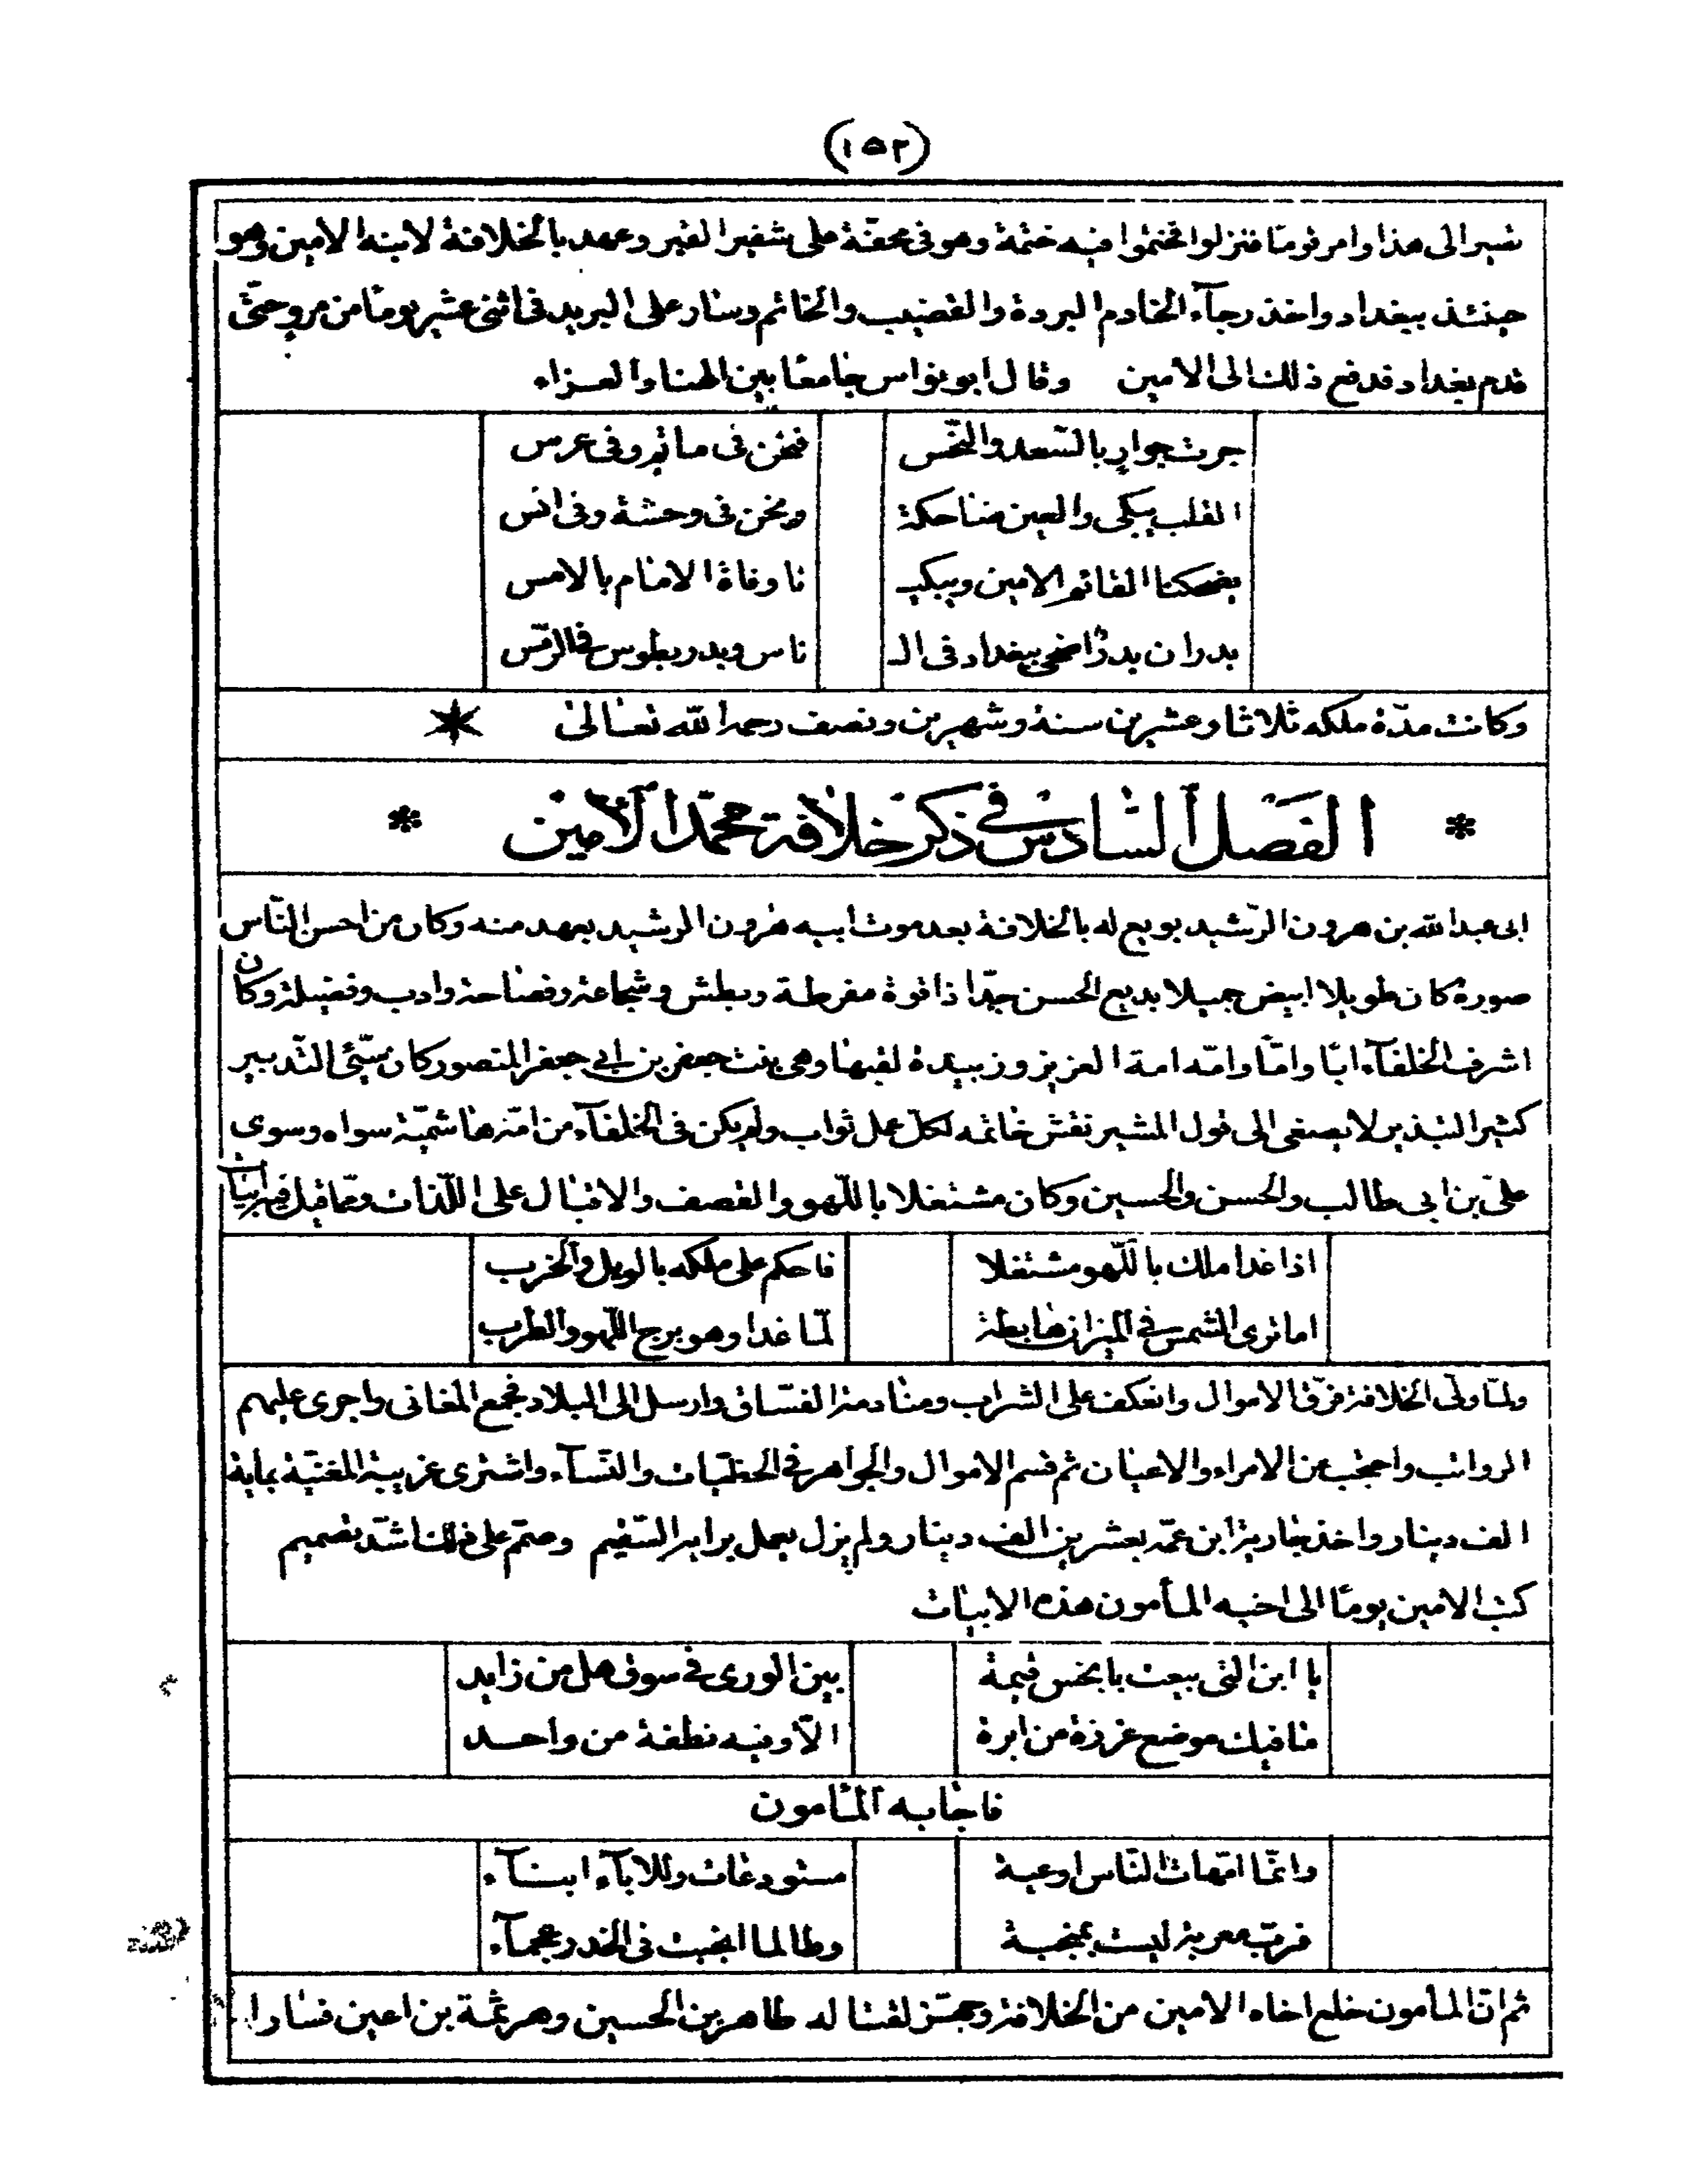 (١٥٢)
تسير الى هذا وامر قوما فنزلوا فختموا فيه ختمة وهو فى محفّة على شفير القبر وعهد بالخلافة لابنه الامين وهو
حينئذ ببغداد واخذ رجآء الخادم البردة والقضيب والخاتم وسار على البريد فى اثنى عشر يومًا من مرو حتّى
قدم بغداد فدفع ذلك الى الامين وقال ابو نواس جامعًا بين الهنا والعزاء
جرت جوارٍ بالسّعد والنّحس فنحن فى ماتم وفى عرس
القلب يبكى والعين ضاحكة ونحن فى وحشة وفى انس
يضحكنا القائم الامين ويبكيـ نا وفاة الامام بالامس
بدران بدرٌ اضحى ببغداد فى الـ ناس وبدر بطوس فى الرّمس
وكانت مدّة ملكه ثلاثا وعشرين سنة وشهرين ونصف رحمه الله تعالى
* الفصل السّادس فى ذكر خلافة محمّد الأمين *
ابى عبد الله بن هرون الرّشيد بويع له بالخلافة بعد موت أبيه هرون الرشيد بعهد منه وكان من احسن النّاس
صورة كان طويلا ابيض جميلا بديع الحسن جدّا ذا قوة مفرطة وبطش وشجاعة وفصاحة وادب وفضيلة وكان
اشرف الخلفآء ابًا وامّا وامّه امة العزيز وزبيدة لقبها وهى بنت جعفر بن ابى جعفر المنصور كان سيّئ التّدبير
كثير التبذير لا يصغى الى قول المشير نقش خاتمه لكلّ عمل ثواب ولم يكن فى الخلفآء من امّه هاشميّة سواه وسوى
علىّ بن ابى طالب والحسن والحسين وكان مشتغلا باللّهو والقصف والاقبال على اللّذات وممّا قيل فيه ابيات
اذا غدا ملك باللّهو مشتغلا فاحكم على ملكه بالويل والخرب
اما ترى الشمس فى الميزان هابطة لمّا غدا وهو برج اللّهو والطرب
ولمّا ولّى الخلافة فرّق الاموال وانعكف على الشراب ومنادمة الفسّاق وارسل الى البلاد فجمع المغانى واجرى عليهم
الرواتب واحتجب عن الامراء والاعيان ثم قسم الاموال والجواهر فى الحظيّات والنّسآء واشترى عريبة المغنّية بماية
الف دينار واخذ جارية ابن عمّه بعشرين الف دينار ولم يزل يعمل برايه السّقيم وصمّم على ذلك اشدّ تصميم
كتب الامين يومًا الى اخيه المأمون هذه الابيات
يا ابن التى بيعت بابخس قيمة بين الورى فى سوق هل من زايد
ما فيك موضع غرزة من ابرة الّا وفيه نطفة من واحد
فاجابه المأمون
وانّما امّهات النّاس اوعية مستودعات وللابآء ابنآء
فربّ معربة ليست بمنجبة وطالما انجبت فى الخدر عجمآء
ثم انّ المأمون خلع اخاه الامين من الخلافة وجهّز لقتاله طاهر بن الحسين وهرثمة بن اعين فسارا